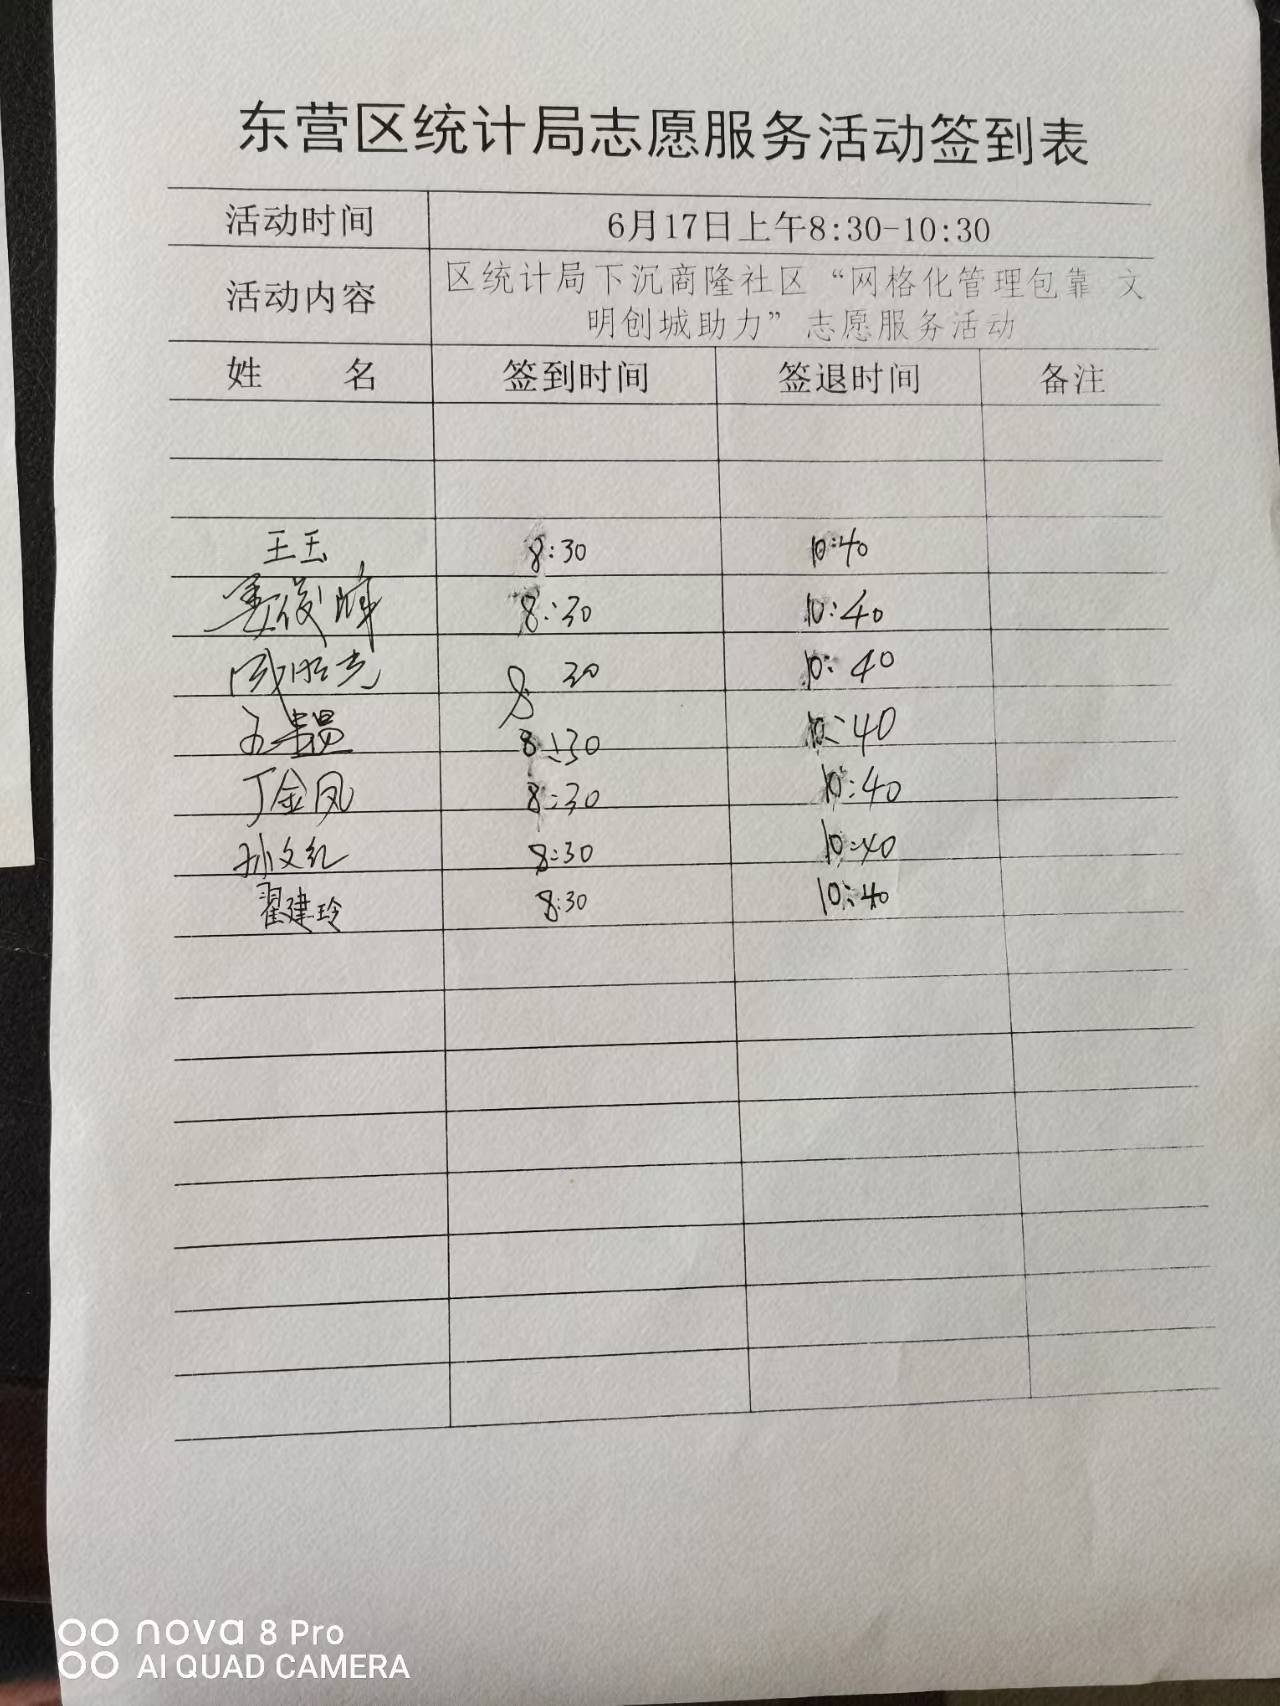 东营区统计局志愿服务活动签到表
活动时间 6月17日上午8:30-10:30
活动内容 区统计局下沉商隆社区“网格化管理包靠 文
明创城助力”志愿服务活动
姓 名 签到时间 签退时间 备注
王玉 8:30 10:40
俊 8:30 10:40
8 30 10:40
8:30 10:40
丁金凤 8:30 10:40
孙文红 8:30 10:40
翟建玲 8:30 10:40
nova 8 Pro
AI QUAD CAMERA